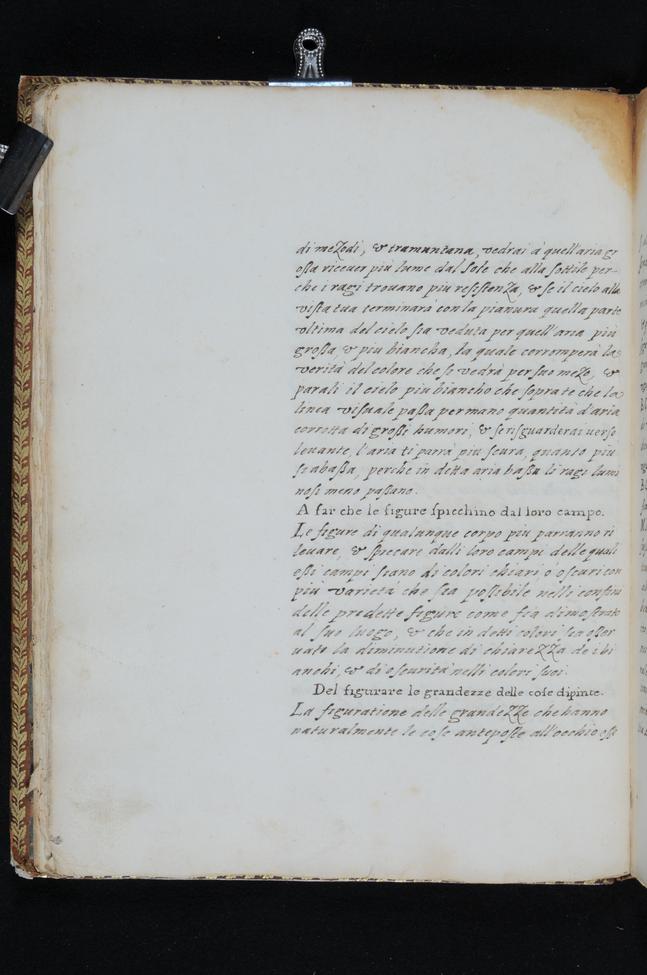 di meZodi, & tramuntana, vedrai à quell'aria gr
ossa riceuer più lume dal Sole che alla sottile per-
che i ragi trouano piu resistenZa, & se il cielo alla
vista tua terminarà con la pianura quella parte
vltima del cielo sia veduta per quell'aria più
grossa, & piu biancha, la quale corromperà la
verità del colore che se vedrà per suo meZo, &
parali il cielo piu biancho che sopra te che la
linea visuale passa per mano quantità d'aria
corrotta di grossi humori, & se risguarderai verso
leuante, l'aria ti parrà piu scura, quanto piu
si abassa, perche in detta aria bassa li ragi lumi
nosi meno passano.
A far che le figure spicchino dal loro campo.
Le figure di qualunque corpo piu parranno ri
leuare, & spiccare dalli loro campi delle quali
essi campi siano di colori chiari, ò oscuri con
più varietà che sia possibile nelli confini
delle predette figure come fia dimostrato
al suo luogo, & che in detti colori sia osser
uato la diminutione di chiareZZa de i bi
anchi, & di oscurità nelli colori suoi.
Del figurare le grandezze delle cose dipinte.
La figuratione delle grandeZZe che hanno
naturalmente le cose anteposte all'occhio